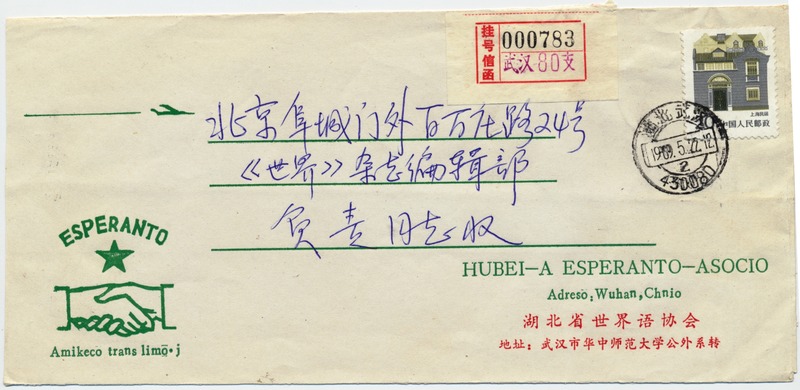 挂号信函
000783
武汉-80支
上海民居
中国人民邮政
湖北武汉
1989.5.22.12
2
430080
北京阜城门外百万庄路24号
《世界》杂志编辑部
负责同志收
ESPERANTO
Amikeco trans limō·j
HUBEI-A ESPERANTO-ASOCIO
Adreso: Wuhan, Chnio
湖北省世界语协会
地址：武汉市华中师范大学公外系转